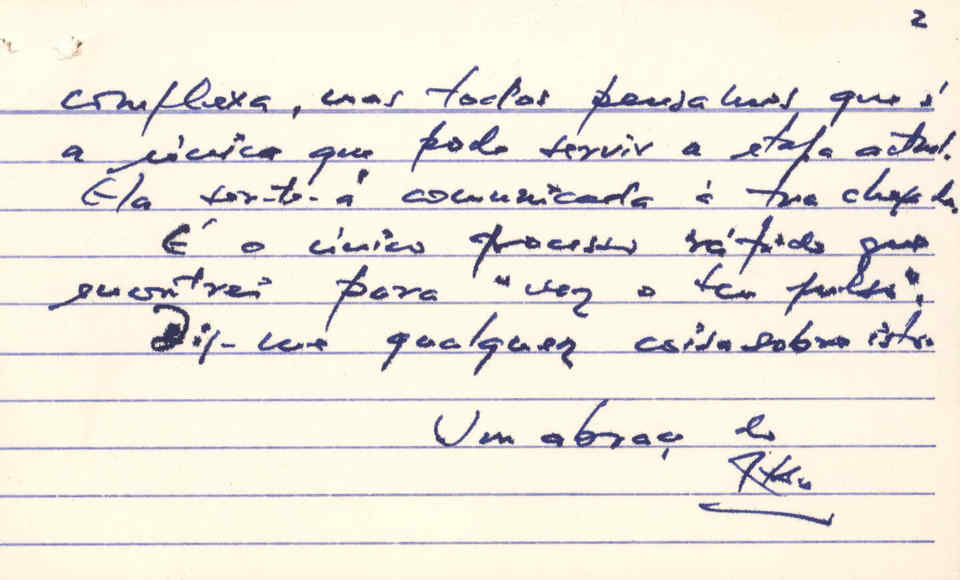 2
complexa, mas todos pensamos que é
a única que pode servir a etapa actual.
Ela ser-te-á comunicada à tua chegada.
É o único processo rápido que
encontrei para "ver o teu pulso".
Diz-me qualquer coisa sobre isto.
Um abraço do